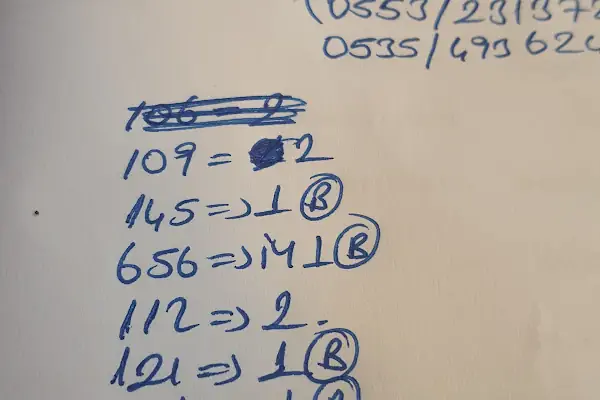 (0553/231372
0535/493624
106 = 2
109 = 2
145 => 1 B
656 => 1 B
112 => 2.
121 => 1 B